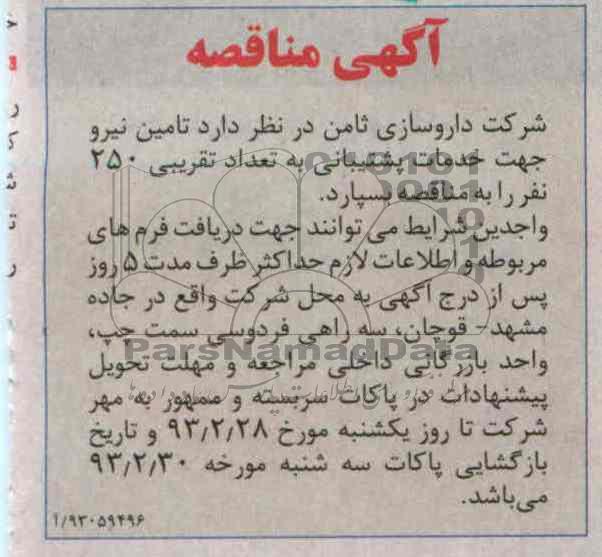 آگهی مناقصه
شرکت داروسازی ثامن در نظر دارد تامین نیرو
جهت خدمات پشتیبانی به تعداد تقریبی ۲۵۰
نفر را به مناقصه بسپارد.
واجدین شرایط می توانند جهت دریافت فرم های
مربوطه و اطلاعات لازم حداکثر ظرف مدت ۵ روز
پس از درج آگهی به محل شرکت واقع در جاده
مشهد- قوچان، سه راهی فردوسی سمت چپ،
ParsNamadData
واحد بازرگانی داخلی مراجعه و مهلت تحویل
پیشنهادات در پاکات سربسته و ممهور به مهر
شرکت تا روز یکشنبه مورخ ۹۳/۲/۲۸ و تاریخ
بازگشایی پاکات سه شنبه مورخه ۹۳/۲/۳۰
می‌باشد.
۱/۹۳۰۵۹۴۹۶